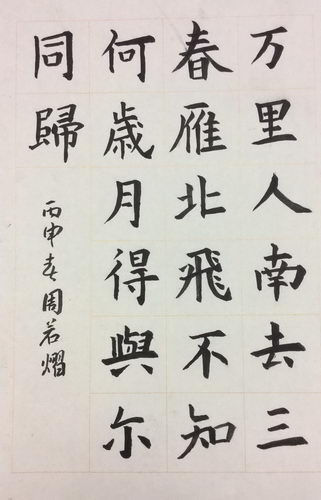 万里人南去三
春雁北飛不知
何歳月得與尔
同歸
丙申春周若熠